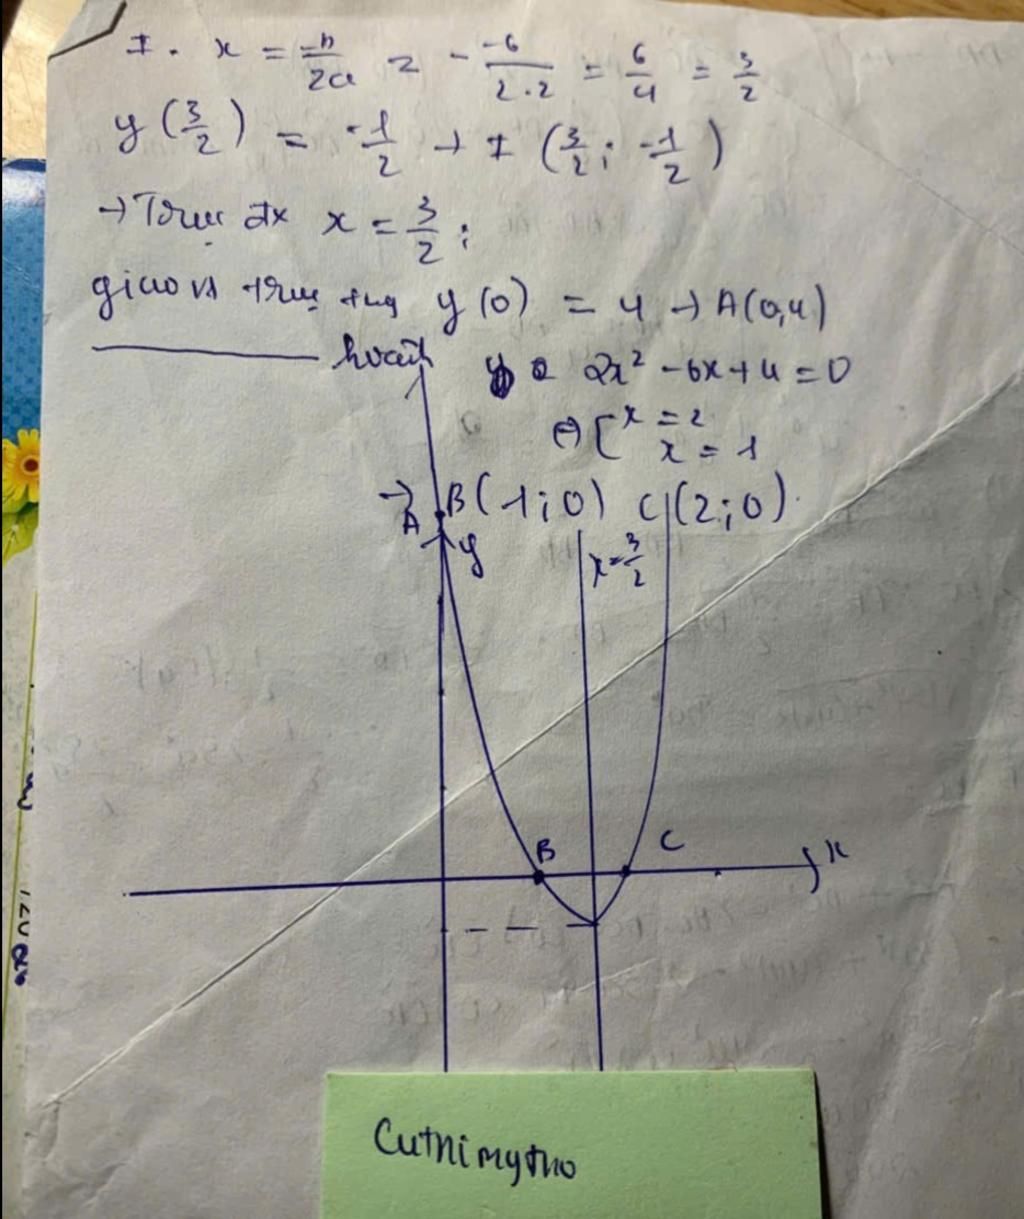 I. x = -b/2a = - -6/2.2 = 6/4 = 3/2
y (3/2) = -1/2 → I (3/2; -1/2)
→ Trục đx x = 3/2;
giao vs trục tug y (0) = 4 → A(0,4)
hoành 2x² - 6x + 4 = 0
⇔ [ x = 2
x = 1
→ B(1;0) C(2;0).
A
y
x = 3/2
B
C
x
Cuthimytho